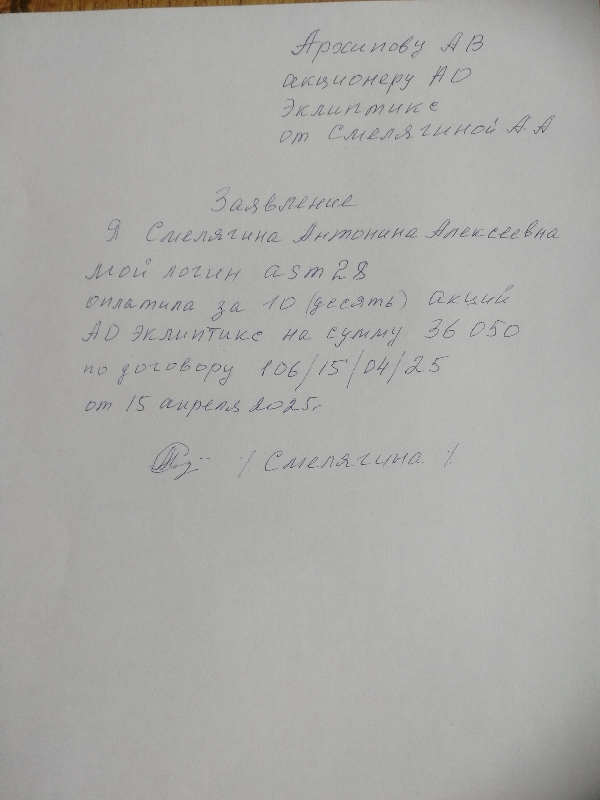 Архипову АВ
акционеру АО
Эклиптикс
от Смелягиной А.А
Заявление
Я Смелягина Антонина Алексеевна
мой логин asm28
оплатила за 10 (десять) акций
АО Эклиптикс на сумму 36 050
по договору 106/15/04/25
от 15 апреля 2025г
/ Смелягина /